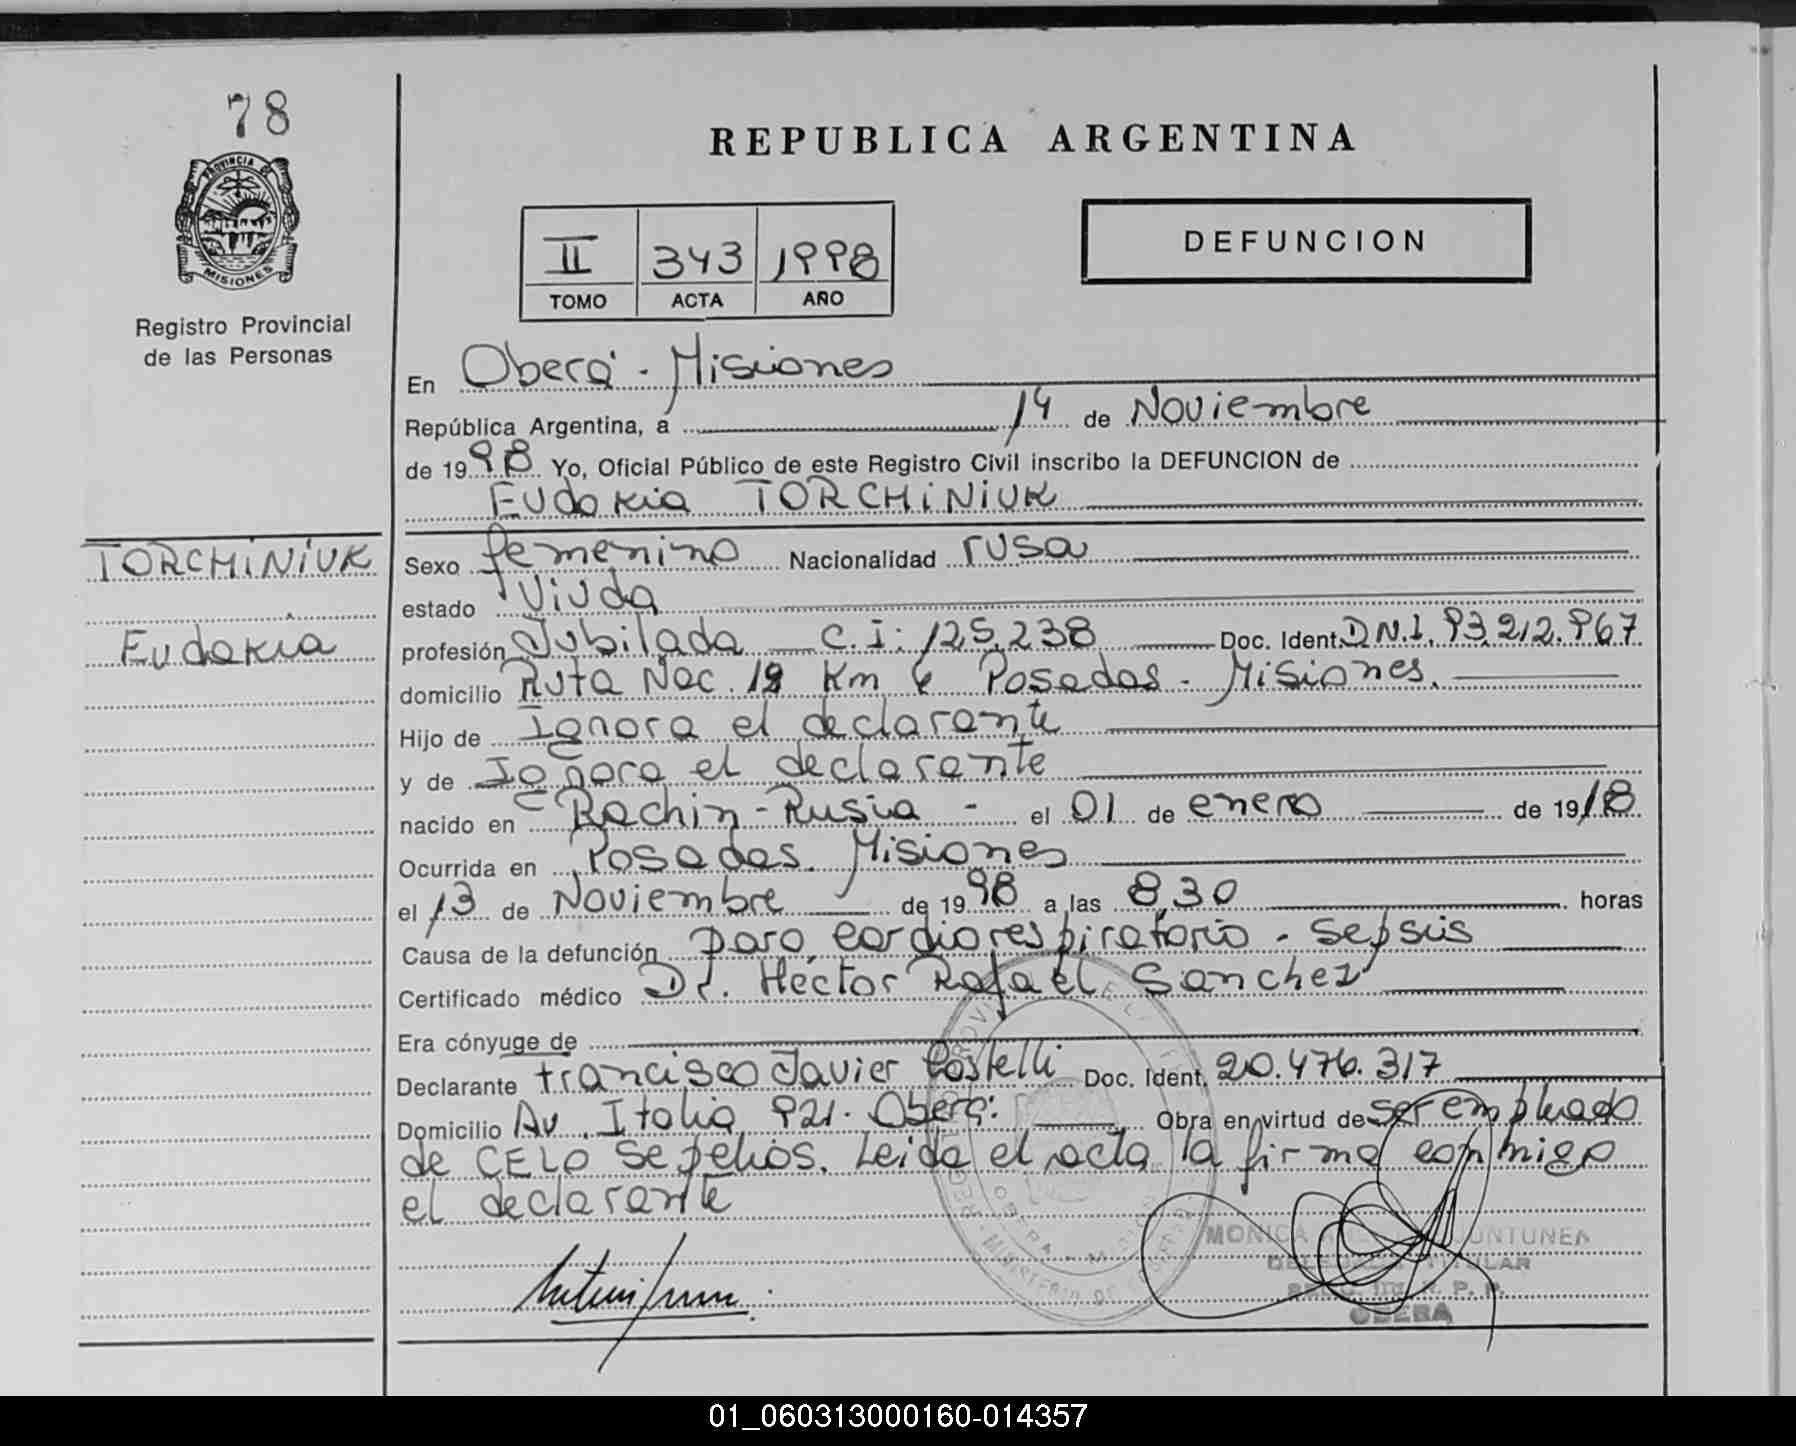 78
PROVINCIA DE
MISIONES
Registro Provincial
de las Personas
REPUBLICA ARGENTINA
II 343 1998
TOMO ACTA AÑO
DEFUNCION
En Oberá - Misiones
República Argentina, a 14 de Noviembre
de 1998 Yo, Oficial Público de este Registro Civil inscribo la DEFUNCION de
Eudokia TORCHINIUK
TORCHINIUK
Eudokia
Sexo femenino Nacionalidad rusa
estado Viuda
profesión Jubilada C.I: 125.238 Doc. Ident. D.N.I. 93.212.967
domicilio Ruta Nac. 12 Km 6 Posadas - Misiones.
Hijo de Ignora el declarante
y de Ignora el declarante
nacido en Rachin - Rusia - el 01 de enero de 1918
Ocurrida en Posadas. Misiones
el 13 de Noviembre de 1998 a las 8,30 horas
Causa de la defunción paro cardiorespiratorio - sepsis
Certificado médico Dr. Héctor Rafael Sanchez
Era cónyuge de
Declarante Francisco Javier Costelli Doc. Ident. 20.476.317
Domicilio Av. Italia 921. Oberá. Obra en virtud de ser empleado
de CELO Sepelios. Leida el acta la firma conmigo
el declarante
MONICA JUNTUNEN
DELEGADA TITULAR
R. P. P.
OBERA
01_060313000160-014357